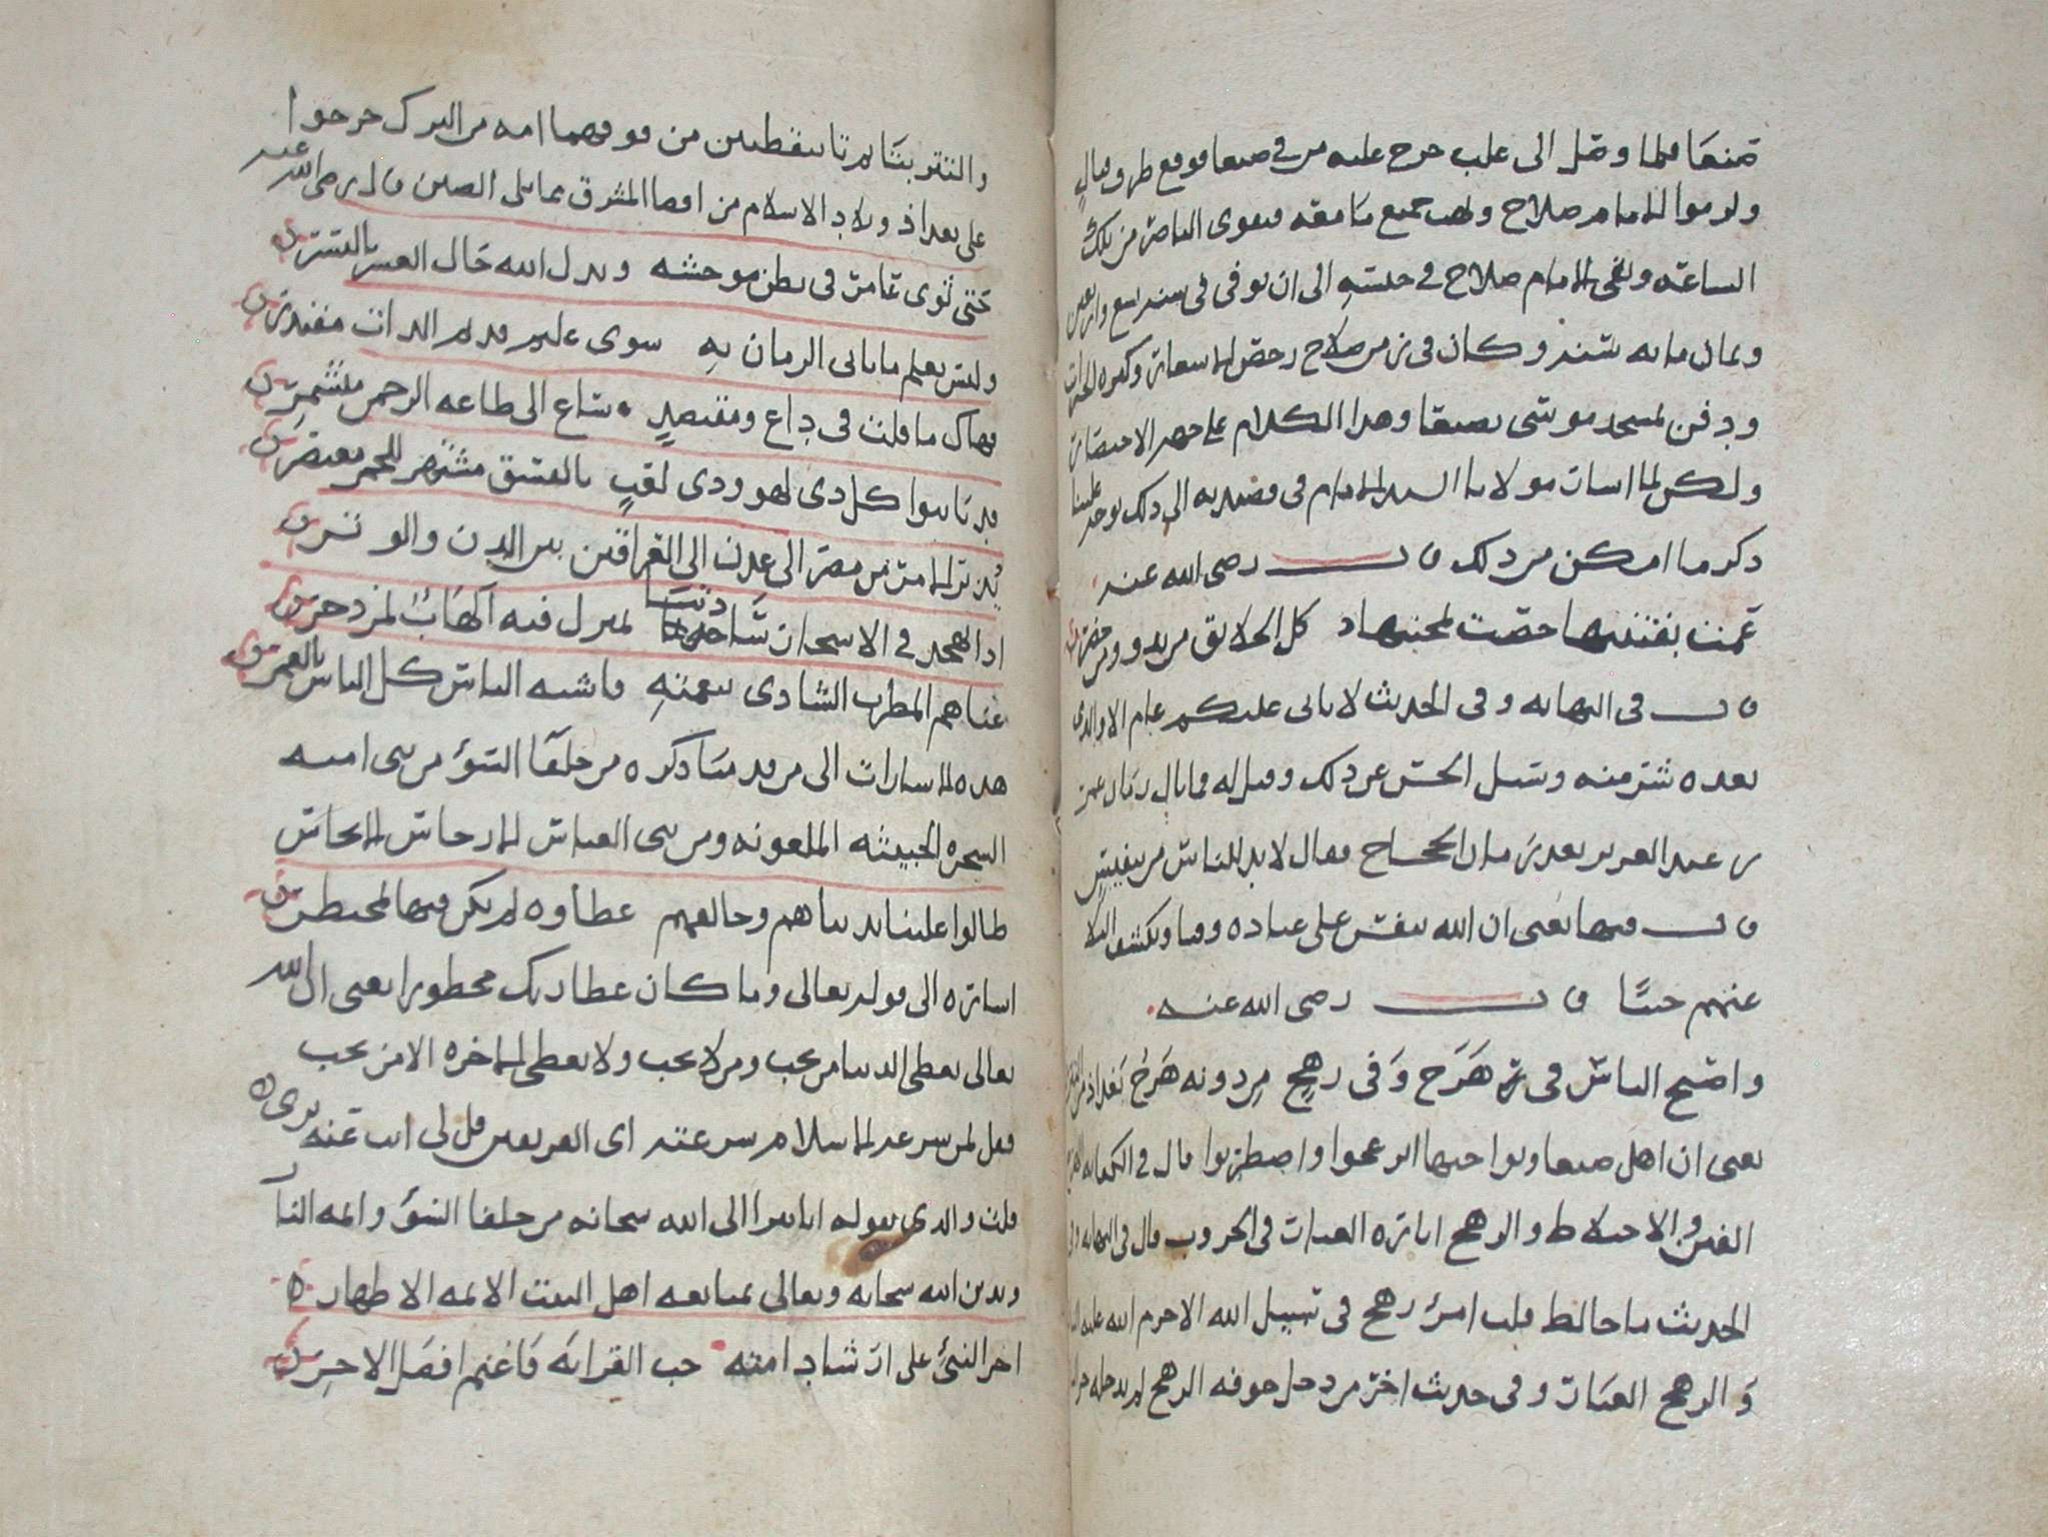 صنعا فلما وصل الى علب خرج عليه من في صنعا فوقع طرف قتال
ولزموا الامام صلاح ونهب جميع ما معه فقوى الناصر من تلك
الساعة وبقي الامام صلاح في حبسه الى ان توفى في سنة تسع واربعين
وثمان مائة سنة وكان في زمن صلاح رخص الاسعار وكثرة الخيرات
ودفن بمسجد موسى بصنعا وهذا الكلام على جهة الاختصار
ولكن لما اشار مولانا السيد الامام في قصيدته الى ذلك توجه علينا
ذكر ما امكن من ذلك قال رضي الله عنه
عمت بفتنتها خصت بمحنتها كل الخلايق من بدو ومن حضر
قال في النهاية وفي الحديث لا ياتي عليكم عام الا والذي
بعده شر منه وسئل الحسن عن ذلك وقيل له فما بال زمان عمر
بن عبد العزيز بعد زمان الحجاج فقال لا بد للناس من تنفيس
قال فيها يعني ان الله ينفس على عباده وقتا ويكشف البلا
عنهم حينا قال رضي الله عنه
واصبح الناس في هرج وفي رهج من دونه هرج بغداد من
يعني ان اهل صنعا ونواحيها انزعجوا واضطربوا قال في الكفاية الهرج
الفتن والاختلاط والرهج اثارة الغبار في الحروب قال في النهاية وفي
الحديث ما خالط قلب امرئ رهج في سبيل الله الا حرم الله عليه النار
والرهج الغبار وفي حديث اخر من دخل جوفه الرهج لم يدخله حر النار
والتتر بتا مثناتا بنقطتين من فوقهما امه من الترك خرجوا
على بغداد وبلاد الاسلام من اقصا المشرق مما يلي الصين قال رضي الله عنه
حتى ثوى عامر في بطن موحشة وبدل الله حال العسر باليسر
وليس يعلم ما ياتي الزمان به سوى عليم قديم الذات مقتدر
فهاك ما قلت في داع ومقتصد ساع الى طاعة الرحمن مشتمر
قد تابعوا كل ذي لهو وذي لقب بالفسق مشتهر للخمر معتصر
من مصر الى عدن الى العراقين بين البدن والوتر
اذا تهجد في الاسحار ساجدنا لم يزل فيه الهاب لمزدجر
غناهم المطرب الشادي بنغمته فاشبه الناس كل الناس بالحمر
هذه الاشارات الى من قدمنا ذكره من خلفا السوء من بني امية
الشجرة الخبيثة الملعونة ومن بني العباس الارجاس الانجاس
طالوا علينا بدنياهم وخالقهم عطاوه لم يكن فيها بمحتظر
اشارة الى قوله تعالى وما كان عطا ربك محظورا يعني ان الله
تعالى يعطي الدنيا من يحب ومن لا يحب ولا يعطي الاخرة الا من يحب
فقل لمن سره الاسلام سرعته اي الفريقين قل لي انت عنه بري
قلت والذي نقوله انا نبرا الى الله سبحانه من خلفا السوء وائمة النار
وندين الله سبحانه وتعالى بمتابعة اهل البيت الائمة الاطهار
اجر النبئ على ارشاد امته حب القرابة فاغنم افضل الاجر